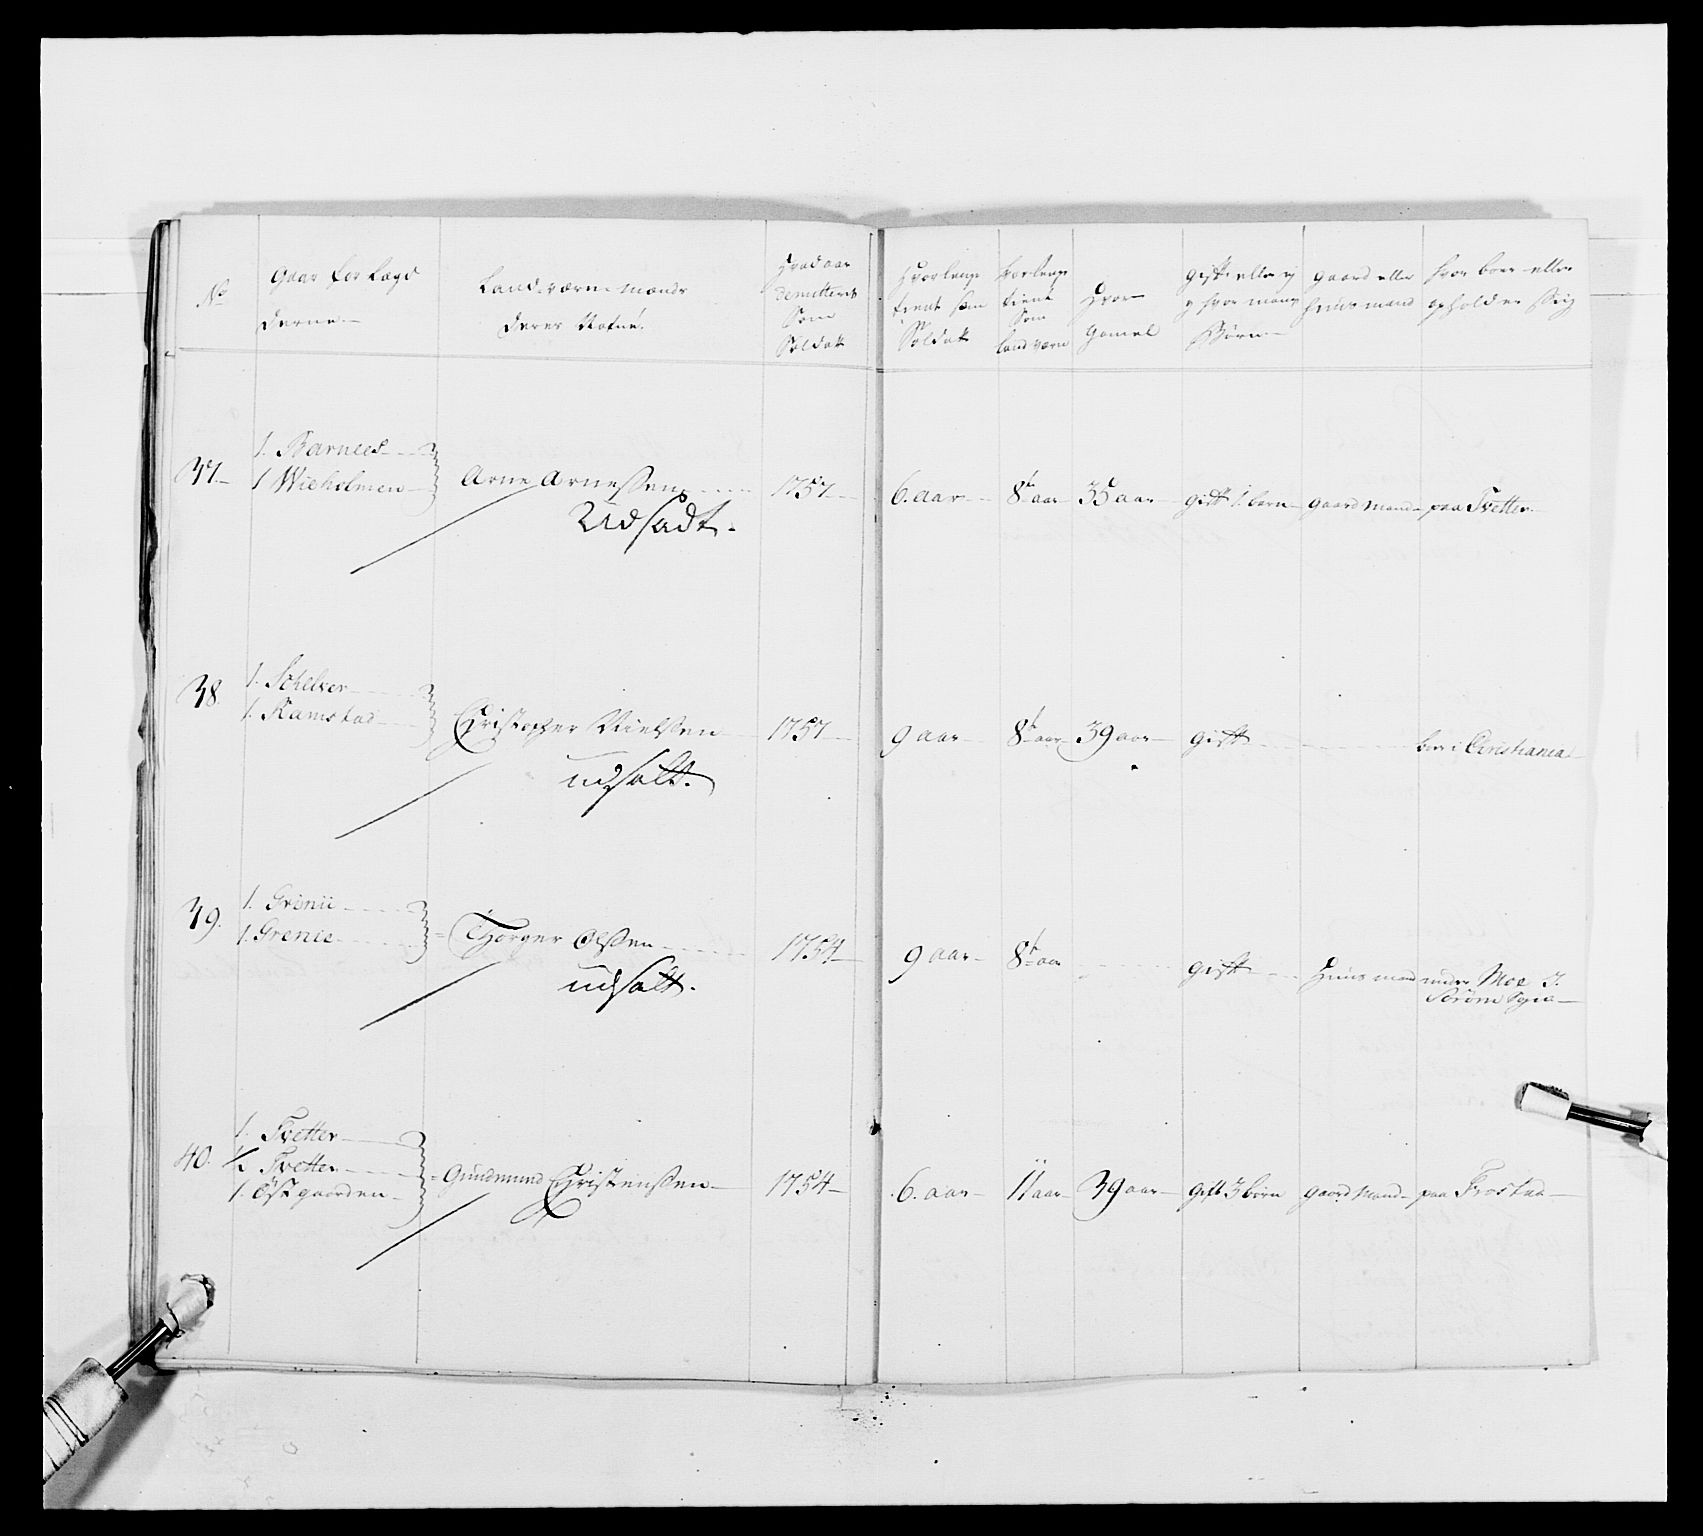 No
Gaar for Lægd
derne
Land værn mænds
deres Nafne.
Hvad aar
demitteret
Som
Soldat
Hvorlenge
tient som
Soldat
hvorlenge
tient
Som
land værn
Hvor
gamel
gift eller ej
og hvor mange
Børn
gaard eller
huus mand
hvor boer eller
opholder Sig
37.
1. Barnees
1 Wiehelmen
Arne Arnessen
Udsadt.
1757
6. aar
8te aar
35 aar
gift 1. barn
gaard mand
paa Tvetter
38.
1. Schelver
1. Ramstad
Christopher Nielssen
udsatt.
1757
9 aar
8te aar
39 aar
gift
boer i Christiania
39.
1. Grinii
1. Grenie
Thorger Olssen
udsatt.
1754
9 aar
8te aar
gift
Huus mand
under Moe I.
Sørøm Sogn
40.
1. Tvetter
1/2 Tvetter
1. Østgaarden
Gundmund Christenssen
1754
6. aar
11 aar
39 aar
gift 3 børn
gaard Mand
paa Frostad